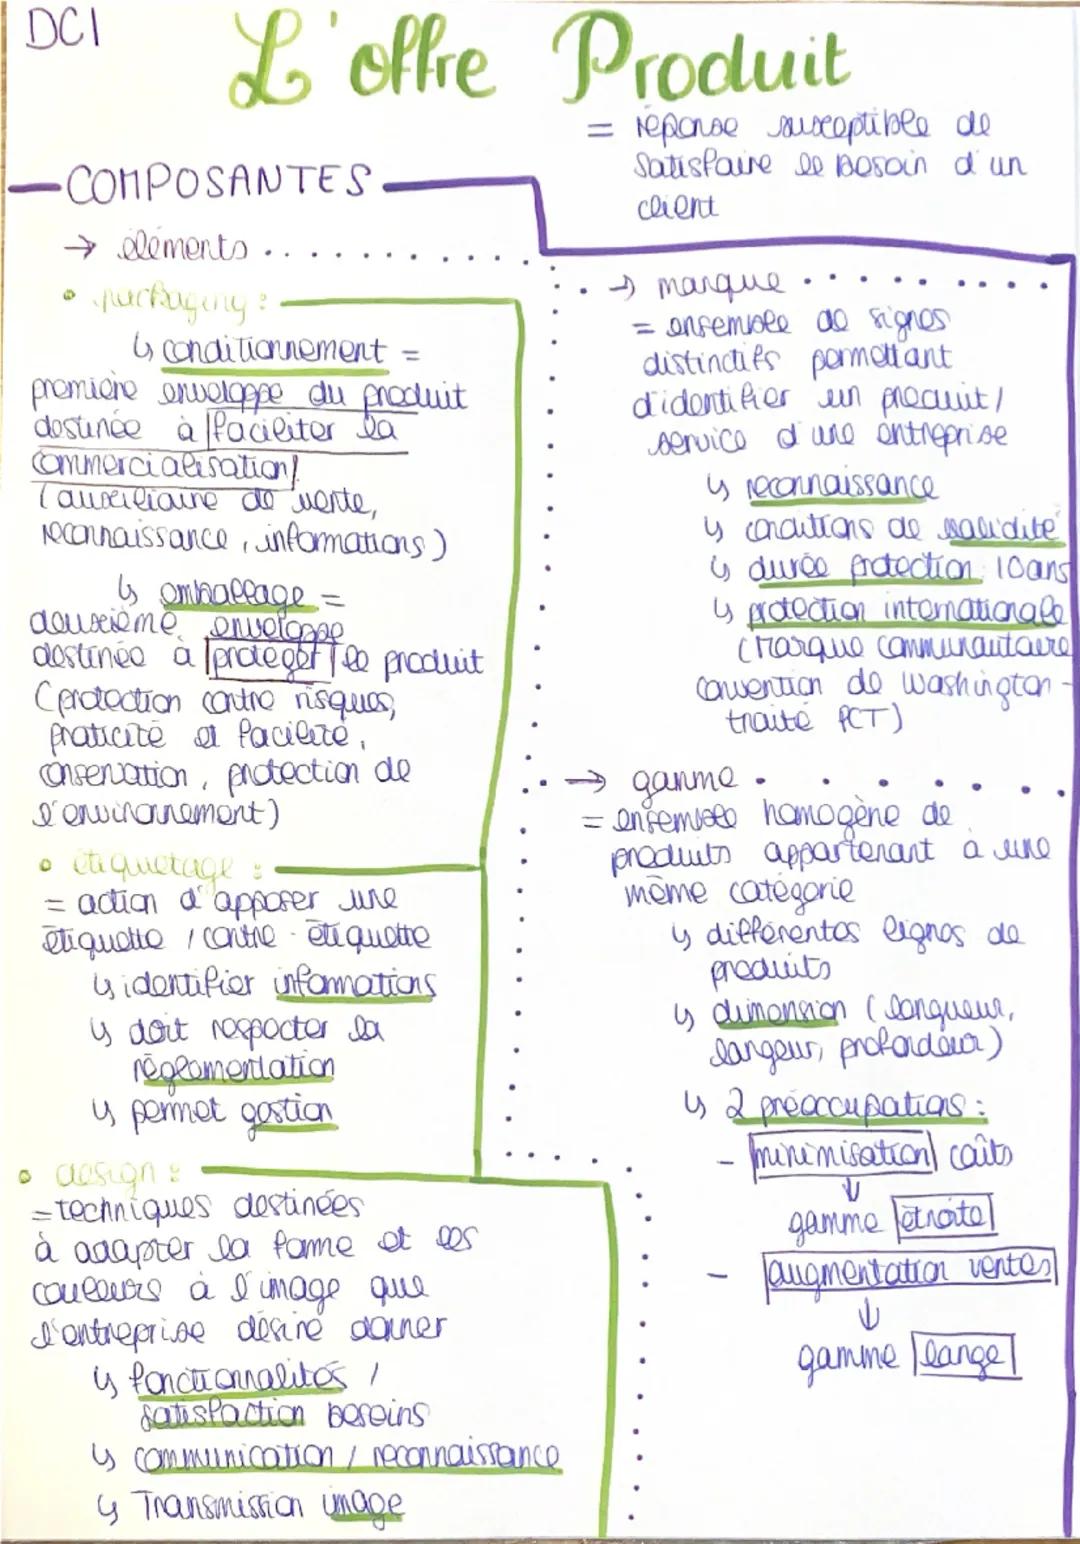 DCI
L'offre Produit
= réponse susceptible de
satisfaire le besoin d'un
client
COMPOSANTES
→ éléments
• packaging :
↳ conditionnement =
première enveloppe du produit
destinée à faciliter la
commercialisation
(auxiliaire de vente,
reconnaissance, informations)
↳ emballage =
deuxième enveloppe
destinée à protéger le produit
(protection contre risques,
praticité et facilité,
conservation, protection de
l'environnement)
• étiquetage :
= action d'apposer une
étiquette / contre-étiquette
↳ identifier informations
↳ doit respecter la
réglementation
↳ permet gestion
• design :
= techniques destinées
à adapter la forme et les
couleurs à l'image que
l'entreprise désire donner
↳ fonctionnalités /
satisfaction besoins
↳ communication / reconnaissance
↳ Transmission image
→ marque
= ensemble de signes
distinctifs permettant
d'identifier un produit /
service d'une entreprise
↳ reconnaissance
↳ conditions de validité
↳ durée protection 10ans
↳ protection internationale
(Marque communautaire
convention de Washington -
traité PCT)
→ gamme
= ensemble homogène de
produits appartenant à une
même catégorie
↳ différentes lignes de
produits
↳ dimension (longueur,
largeur, profondeur)
↳ 2 préoccupations :
- minimisation coûts
↓
gamme étroite
- augmentation ventes
↓
gamme large